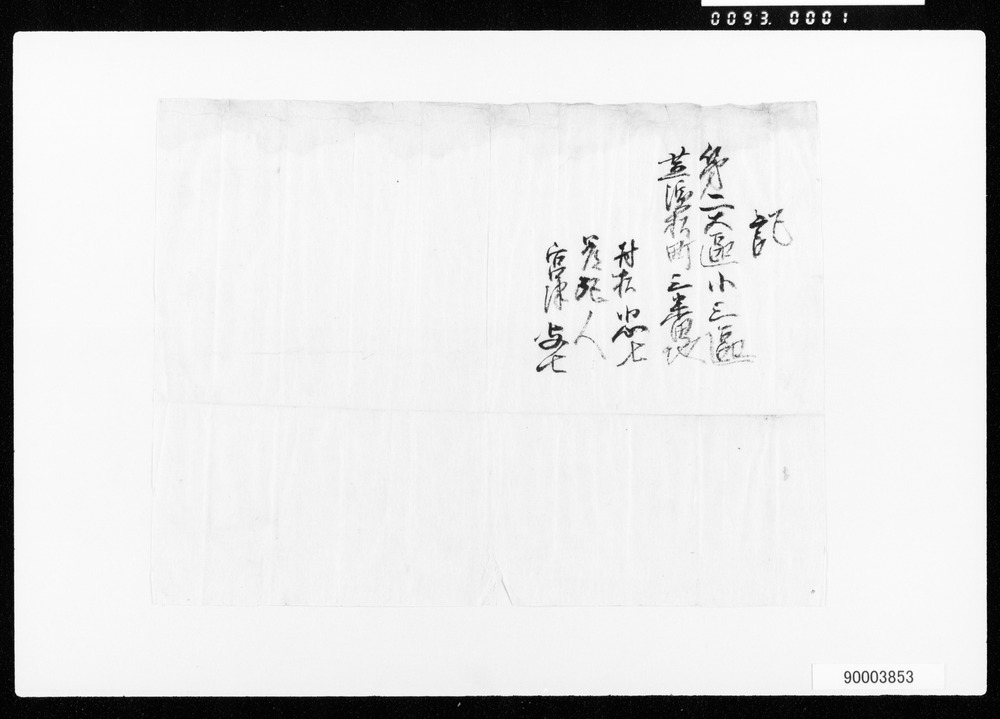 0093. 0001
記
第二大區小三區
芝濱松町三番地
村松忠七
差配人
宮津与七
90003853